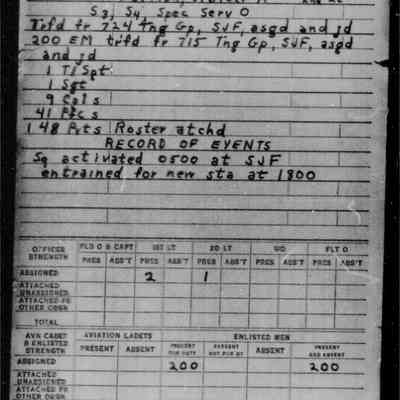 S3, S4, Spec Serv O
Trfd fr 724 Tng Gp, SJF, asgd and jd
200 EM trfd fr 715 Tng Gp, SJF, asgd
and jd
1 T/Sgt
1 Sgt
9 Cpls
41 Pfcs
148 Pvts Roster atchd
RECORD OF EVENTS
Sq activated 0500 at SJF
entrained for new sta at 1800
OFFICER STRENGTH FLD O & CAPT 1ST LT 2D LT WO FLT O
PRES ABS'T PRES ABS'T PRES ABS'T PRES ABS'T PRES ABS'T
ASSIGNED 2 1
ATTACHED UNASSIGNED
ATTACHED FR OTHER ORGN
TOTAL
AVN CADET & ENLISTED STRENGTH AVIATION CADETS ENLISTED MEN
PRESENT ABSENT PRESENT FOR DUTY PRESENT NOT FOR DY ABSENT PRESENT AND ABSENT
ASSIGNED 200 200
ATTACHED UNASSIGNED
ATTACHED FR OTHER ORGN